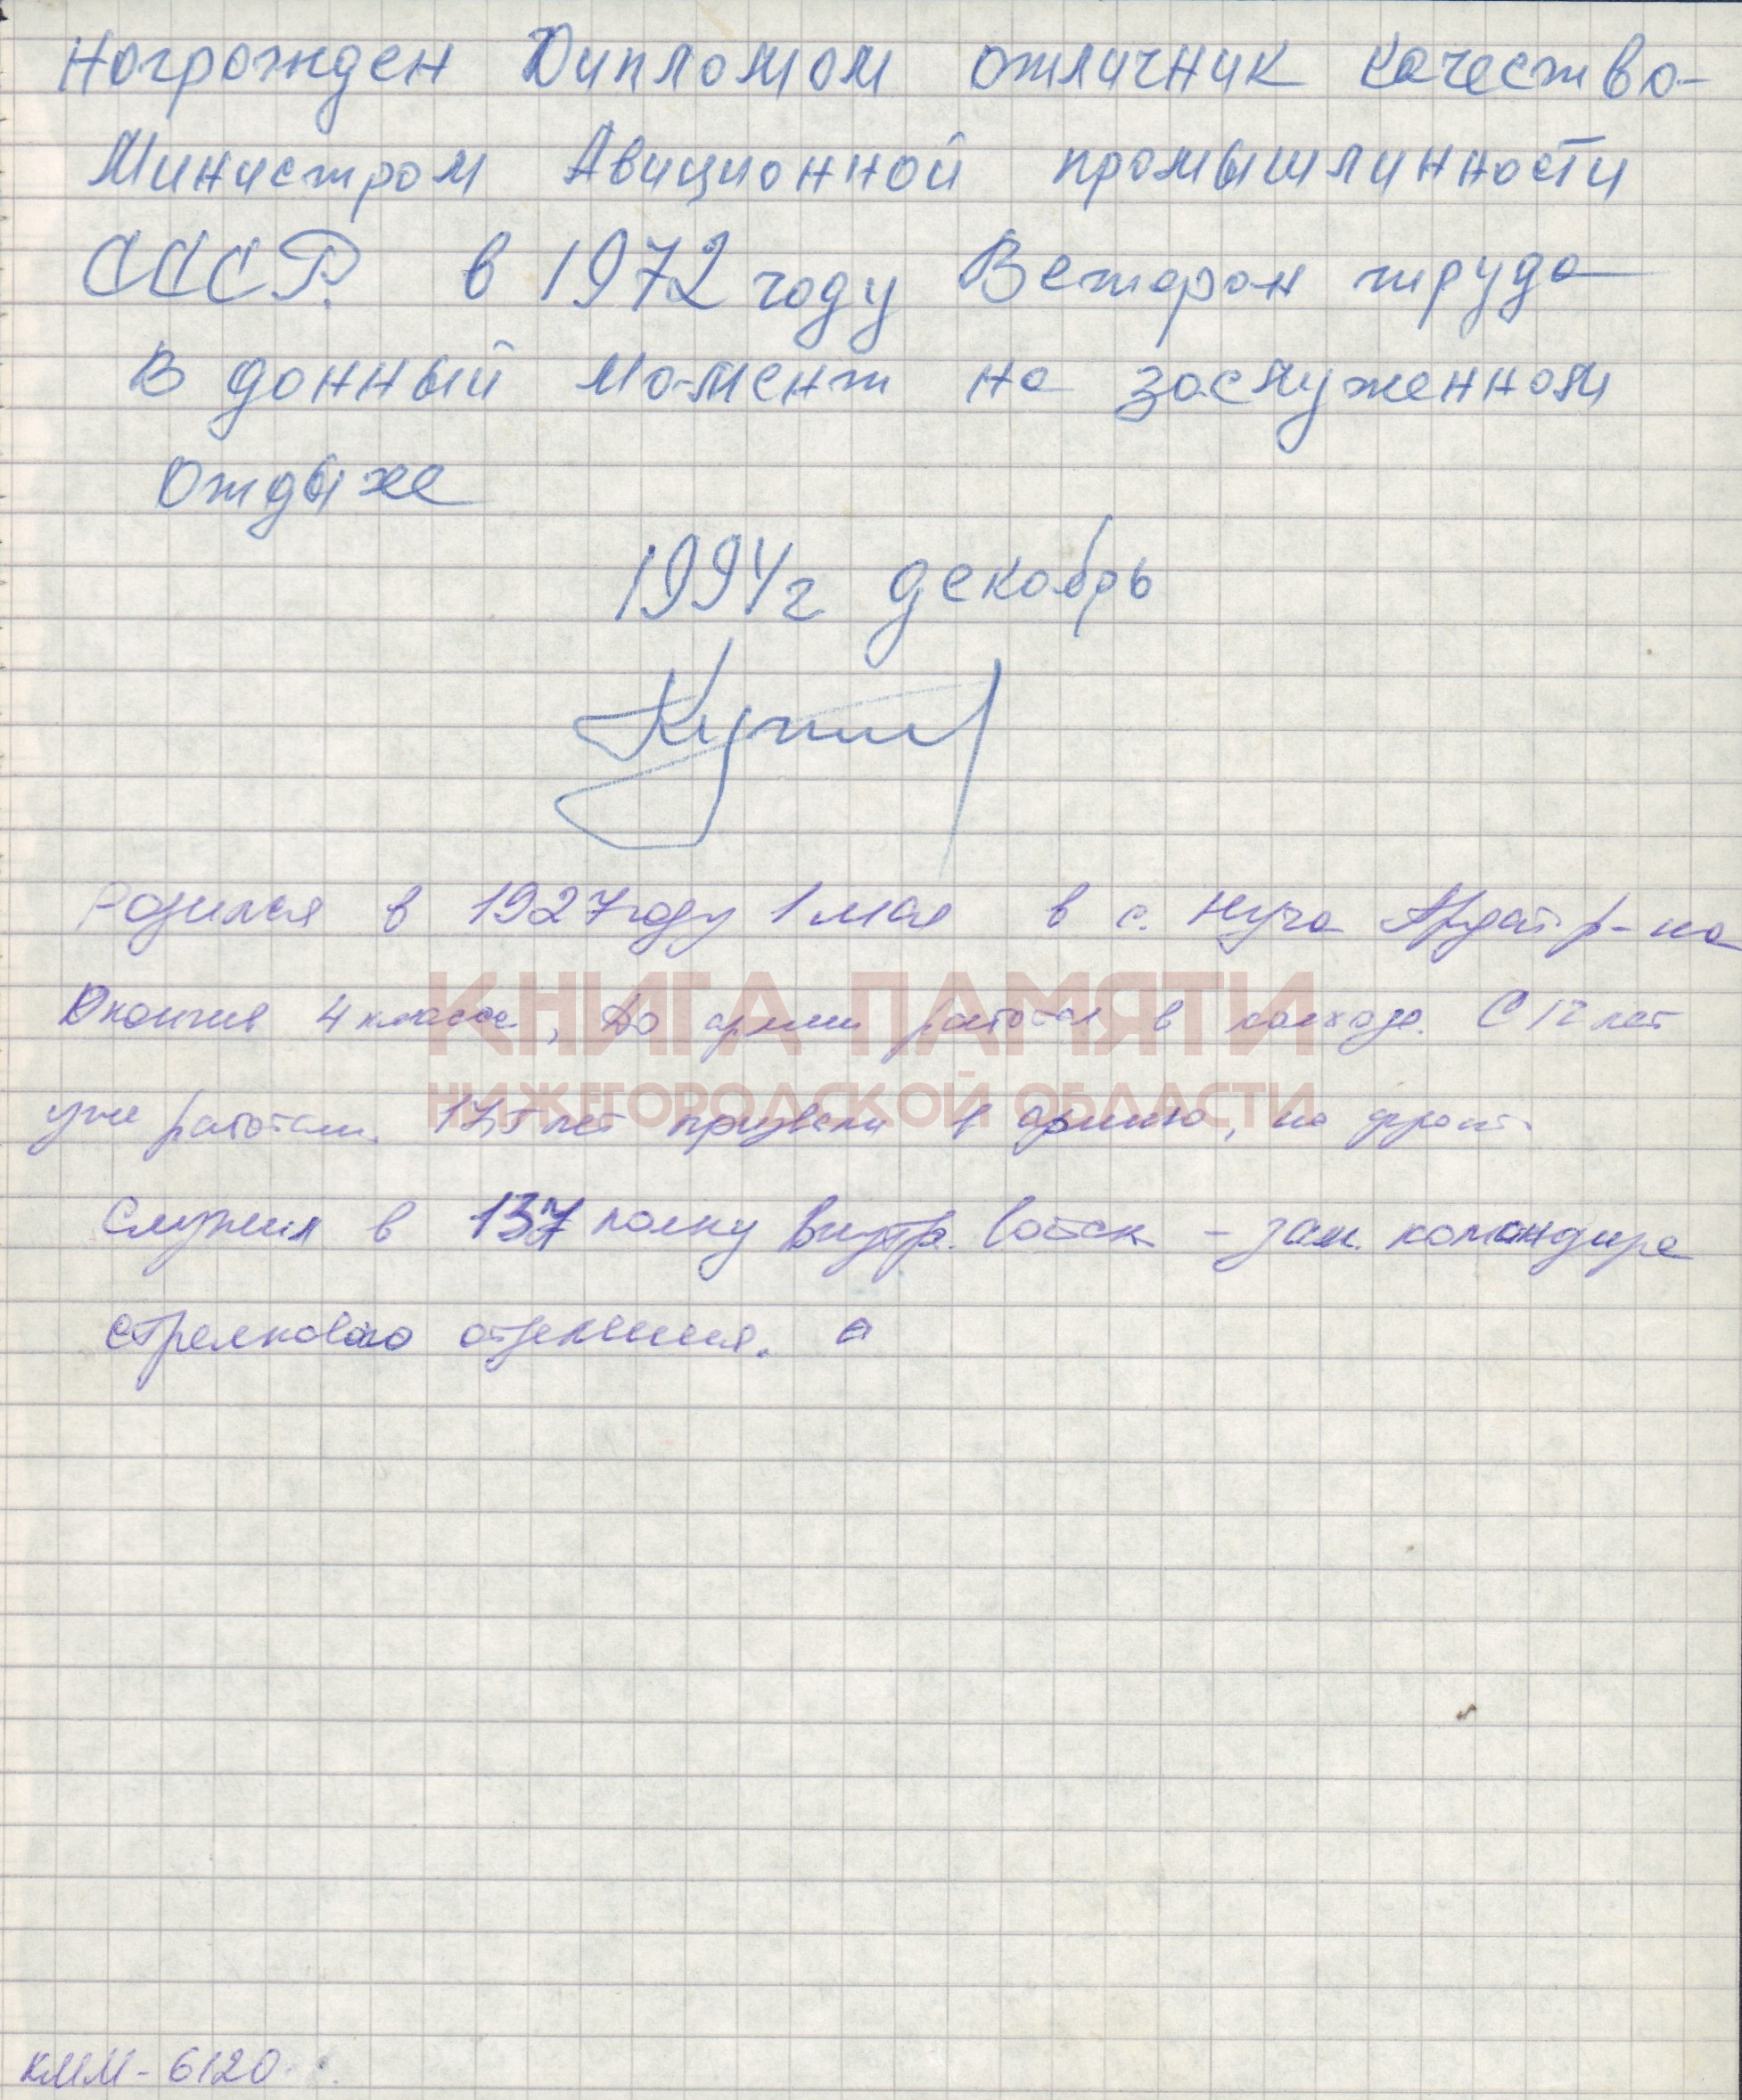 Награжден Дипломом отличник качества-
Министром Авиционной промышлинности
СССР. в 1972 году Ветеран труда
В данный момент на заслуженном
Отдыхе
1994г декабрь
Родился в 1927 году 1 мая в с. Нуча Ардат р-на
КНИГА ПАМЯТИ
Окончив 4 класса, до армии работал в колхозе. С 12 лет
НИЖЕГОРОДСКОЙ ОБЛАСТИ
уже работали. 17,5 лет призвали в армию, на фронт.
Служил в 137 полку Внутр. войск - зам. командира
стрелкового отделения. а
КММ-6120